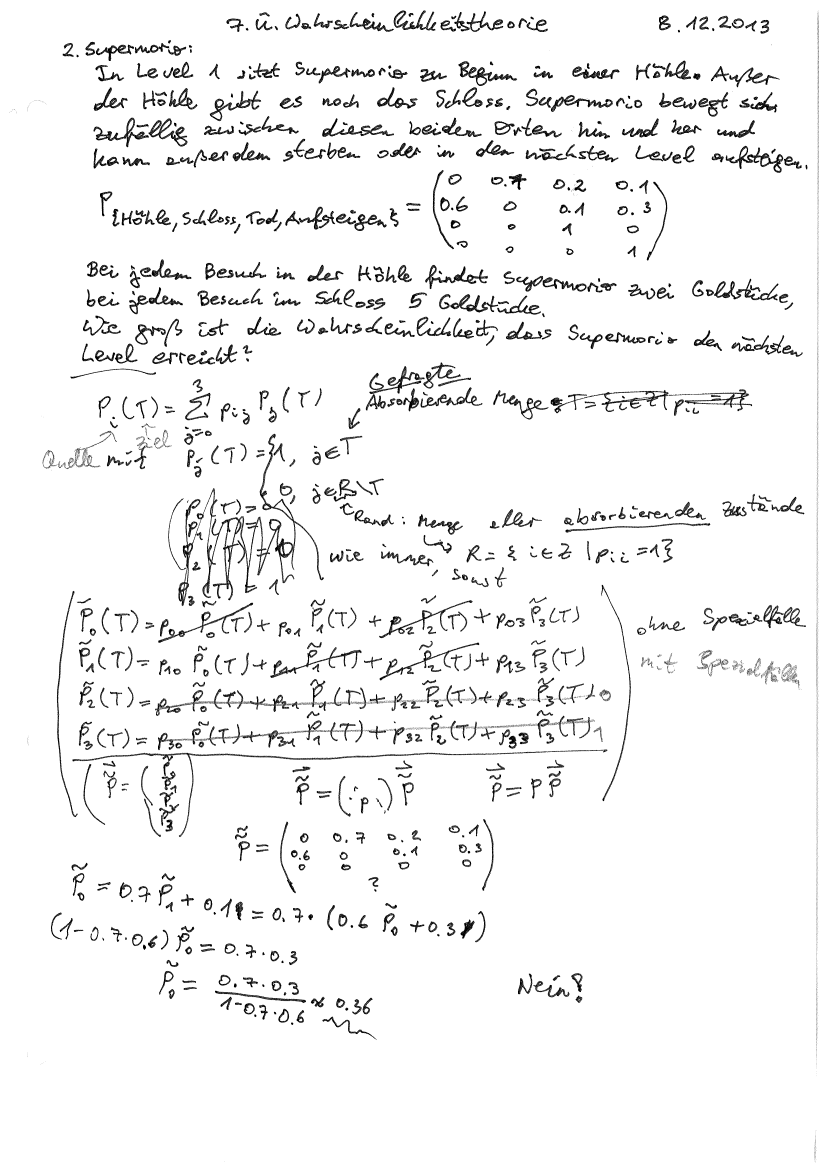 7. Ü. Wahrscheinlichkeitstheorie 8.12.2013
2. Supermario:
In Level 1 sitzt Supermario zu Beginn in einer Höhle. Außer
der Höhle gibt es noch das Schloss. Supermario bewegt sich
zufällig zwischen diesen beiden Orten hin und her und
kann außerdem sterben oder in den nächsten Level aufsteigen.
P{Höhle, Schloss, Tod, Aufsteigen} =
0 0.7 0.2 0.1
0.6 0 0.1 0.3
0 0 1 0
0 0 0 1
Bei jedem Besuch in der Höhle findet Supermario zwei Goldstücke,
bei jedem Besuch im Schloss 5 Goldstücke.
Wie groß ist die Wahrscheinlichkeit, dass Supermario den nächsten
Level erreicht?
Gefragte
P_i(T) = Σ_{j=0}^{3} p_ij P_j(T) Absorbierende Menge : T = {i∈Z | p_ii = 1}
Quelle Ziel
mit P_j(T) = { 1, j∈T
0, j∈R\T
Rand: Menge aller absorbierenden Zustände
wie immer, R = { i∈Z | p_ii = 1}
sonst
P_0(T) = 0
P_1(T) = 0
P_2(T) = 0
P_3(T) = 1
P̃_0(T) = p_00 P̃_0(T) + p_01 P̃_1(T) + p_02 P̃_2(T) + p_03 P̃_3(T)
ohne Spezialfälle
P̃_1(T) = p_10 P̃_0(T) + p_11 P̃_1(T) + p_12 P̃_2(T) + p_13 P̃_3(T)
mit Spezialfällen
P̃_2(T) = p_20 P̃_0(T) + p_21 P̃_1(T) + p_22 P̃_2(T) + p_23 P̃_3(T) 0
P̃_3(T) = p_30 P̃_0(T) + p_31 P̃_1(T) + p_32 P̃_2(T) + p_33 P̃_3(T) 1
P̃ = P̃ = ( p ) P̃ P̃ = P P̃
P̃ =
0 0.7 0.2 0.1
0.6 0 0.1 0.3
0 0 0 0
?
P̃_0 = 0.7 P̃_1 + 0.1 = 0.7 · (0.6 P̃_0 + 0.3)
(1-0.7·0.6) P̃_0 = 0.7·0.3
P̃_0 = 0.7·0.3 / 1-0.7·0.6 ≈ 0.36
Nein?